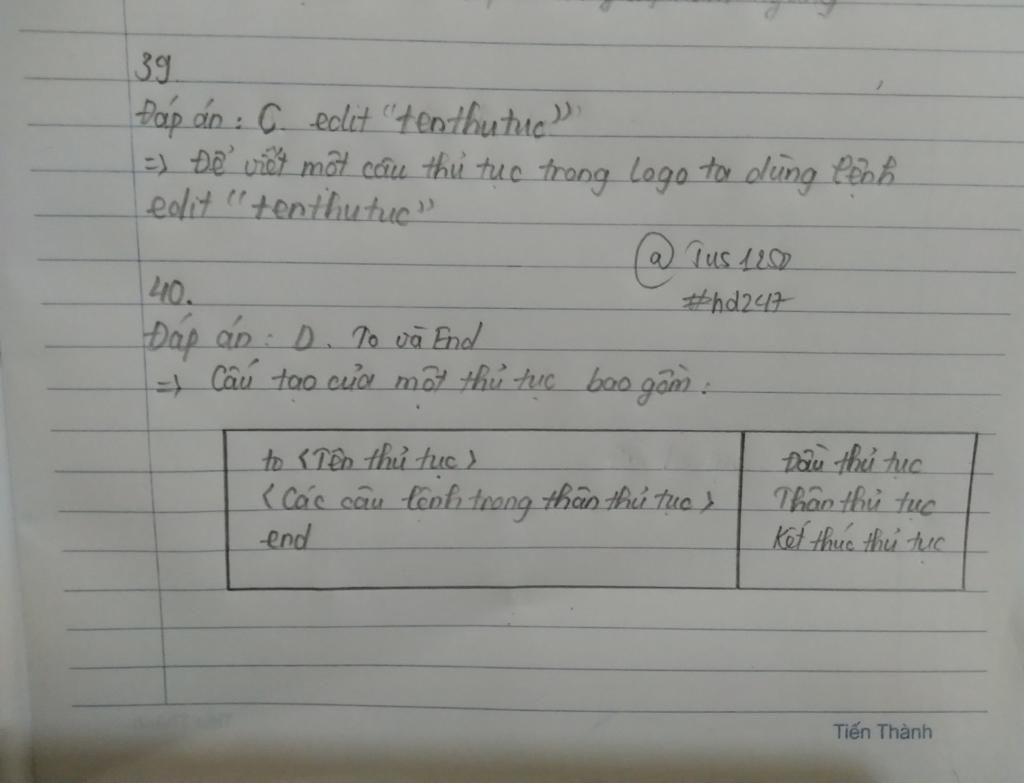 39
Đáp án: C. edit "tenthutuc"
=> Để viết một câu thủ tục trong Logo ta dùng lệnh
edit "tenthutuc"
@ Tus1250
#hd247
40.
Đáp án: D. To và End
=> Cấu tạo của một thủ tục bao gồm:
to <Tên thủ tục> Đầu thủ tục
<Các câu lệnh trong thân thủ tục> Thân thủ tục
end Kết thúc thủ tục
Tiến Thành